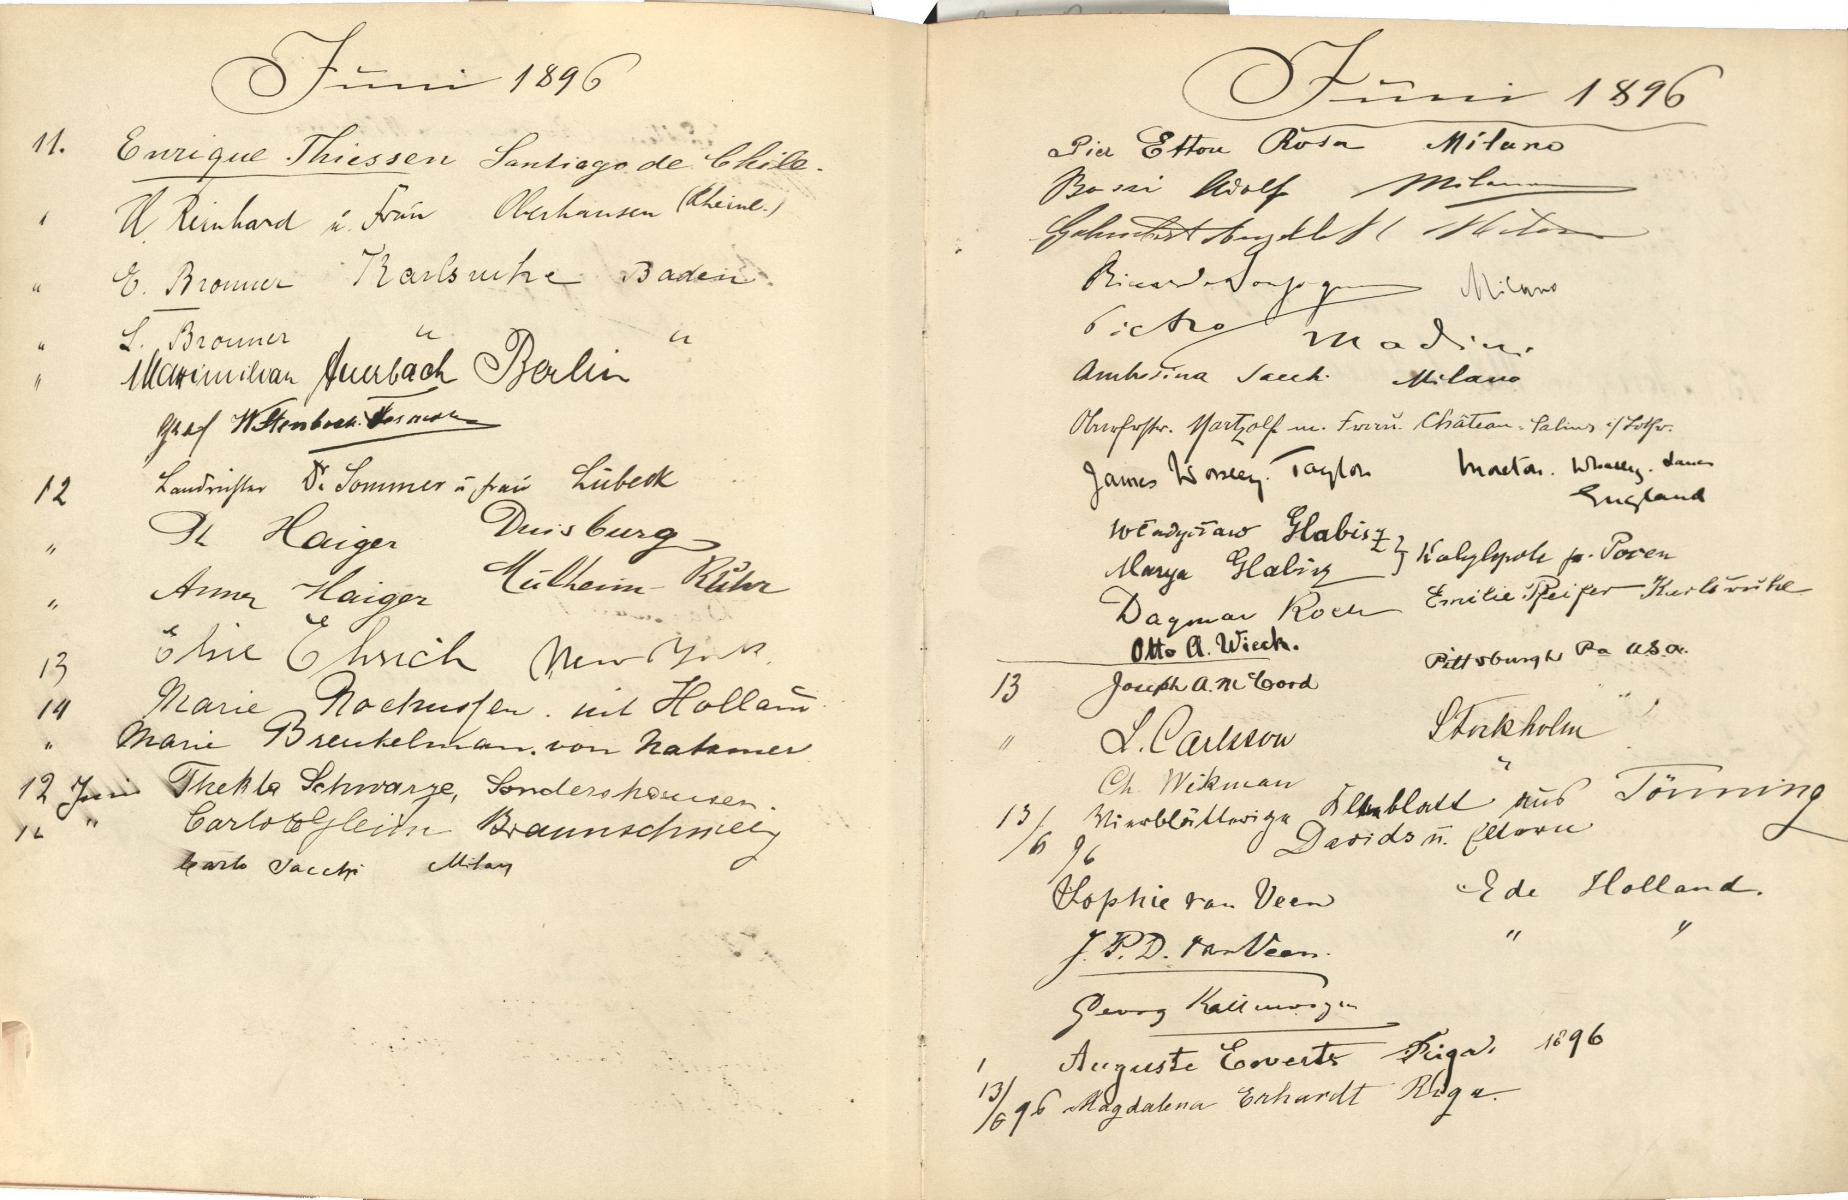 Juni 1896
11. Enrique Thiessen Santiago de Chile.
" H. Reinhard u. Frau Oberhausen (Rheinl.)
" E. Bronner Karlsruhe Baden.
" L. Bronner " "
" Maximilian Auerbach Berlin
Graf
12 Landrichter Dr. Sommer u frau Lübeck
" Haiger Duisburg
" Anna Haiger Mülheim-Ruhr
13 Elsie Ehrich New York.
14 Marie Rochussen. Holland
" Marie Breukelman. von
12 Juni Thekla Schwarze, Sondershausen.
12 " Carlo Braunschweig
Carlo Sacchi Milan
Juni 1896
Pier Ettore Rosa Milano
Bossi Adolf Milano
Milano
Pietro Madini
Ambrosina Sacchi Milano
Martzolf m. Frau. Château-Salins i/Lothr.
James Worsley-Taylor Moreton. Whalley. Lancs
England
Władysław Glabisz
Marya Glabisz } p. Posen
Dagmar Koch Emilie Pfeifer Karlsruhe
Otto A. Wieck.
13 Joseph A. McCord Pittsburgh Pa USA.
" L. Carlsson Stockholm
Ch. Wikman "
13/6 96 Vierblätterige Kleeblatt aus Tönning
Davids u.
Sophie van Veen Ede Holland.
J. P. D. van Veen. " "
Georg
Auguste Everts Riga. 1896
13/6 96 Magdalena Erhardt Riga.